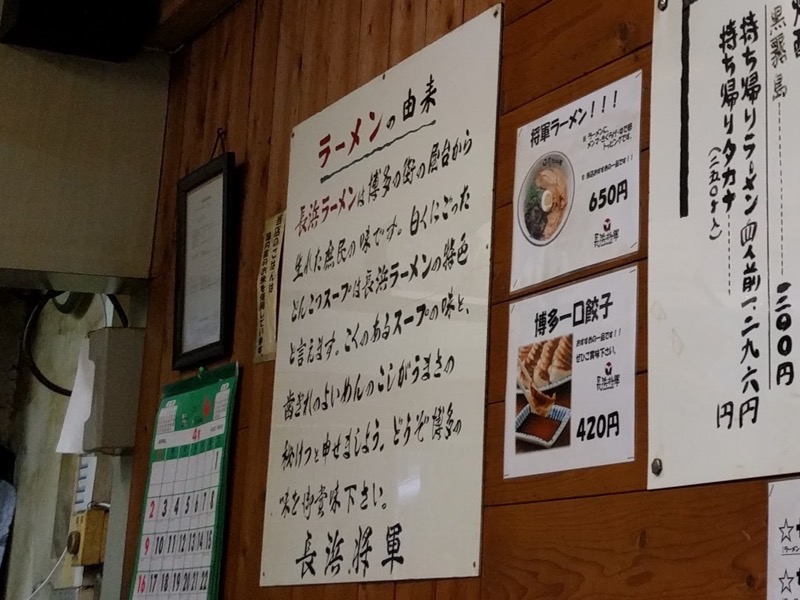 ラーメンの由来
長浜ラーメンは博多の街の屋台から
生れた庶民の味です。白くにごった
とんこつスープは長浜ラーメンの特色
と言えます。こくのあるスープの味と、
歯ぎれのよいめんのこしがうまさの
秘けつと申せましよう。どうぞ博多の
味を御賞味下さい。
長浜将軍
将軍ラーメン!!!
650円
博多一口餃子
おすすめの一品です!!
ぜひご賞味下さい。
420円
黒霧島
二〇〇円
持ち帰りラーメン四人前
一二九六円
持ち帰りタカナ
円
4
1
2 3 4 5 6 7 8
9 10 11 12 13 14 15
16 17 18 19 20 21 22